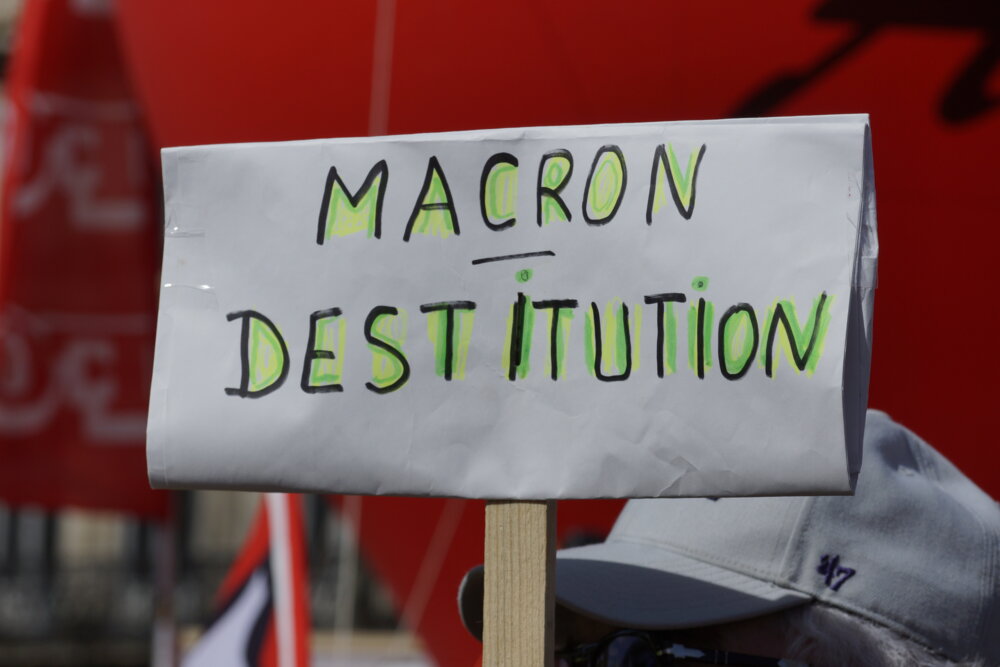 MACRON
-
DESTiTUTiON
'47